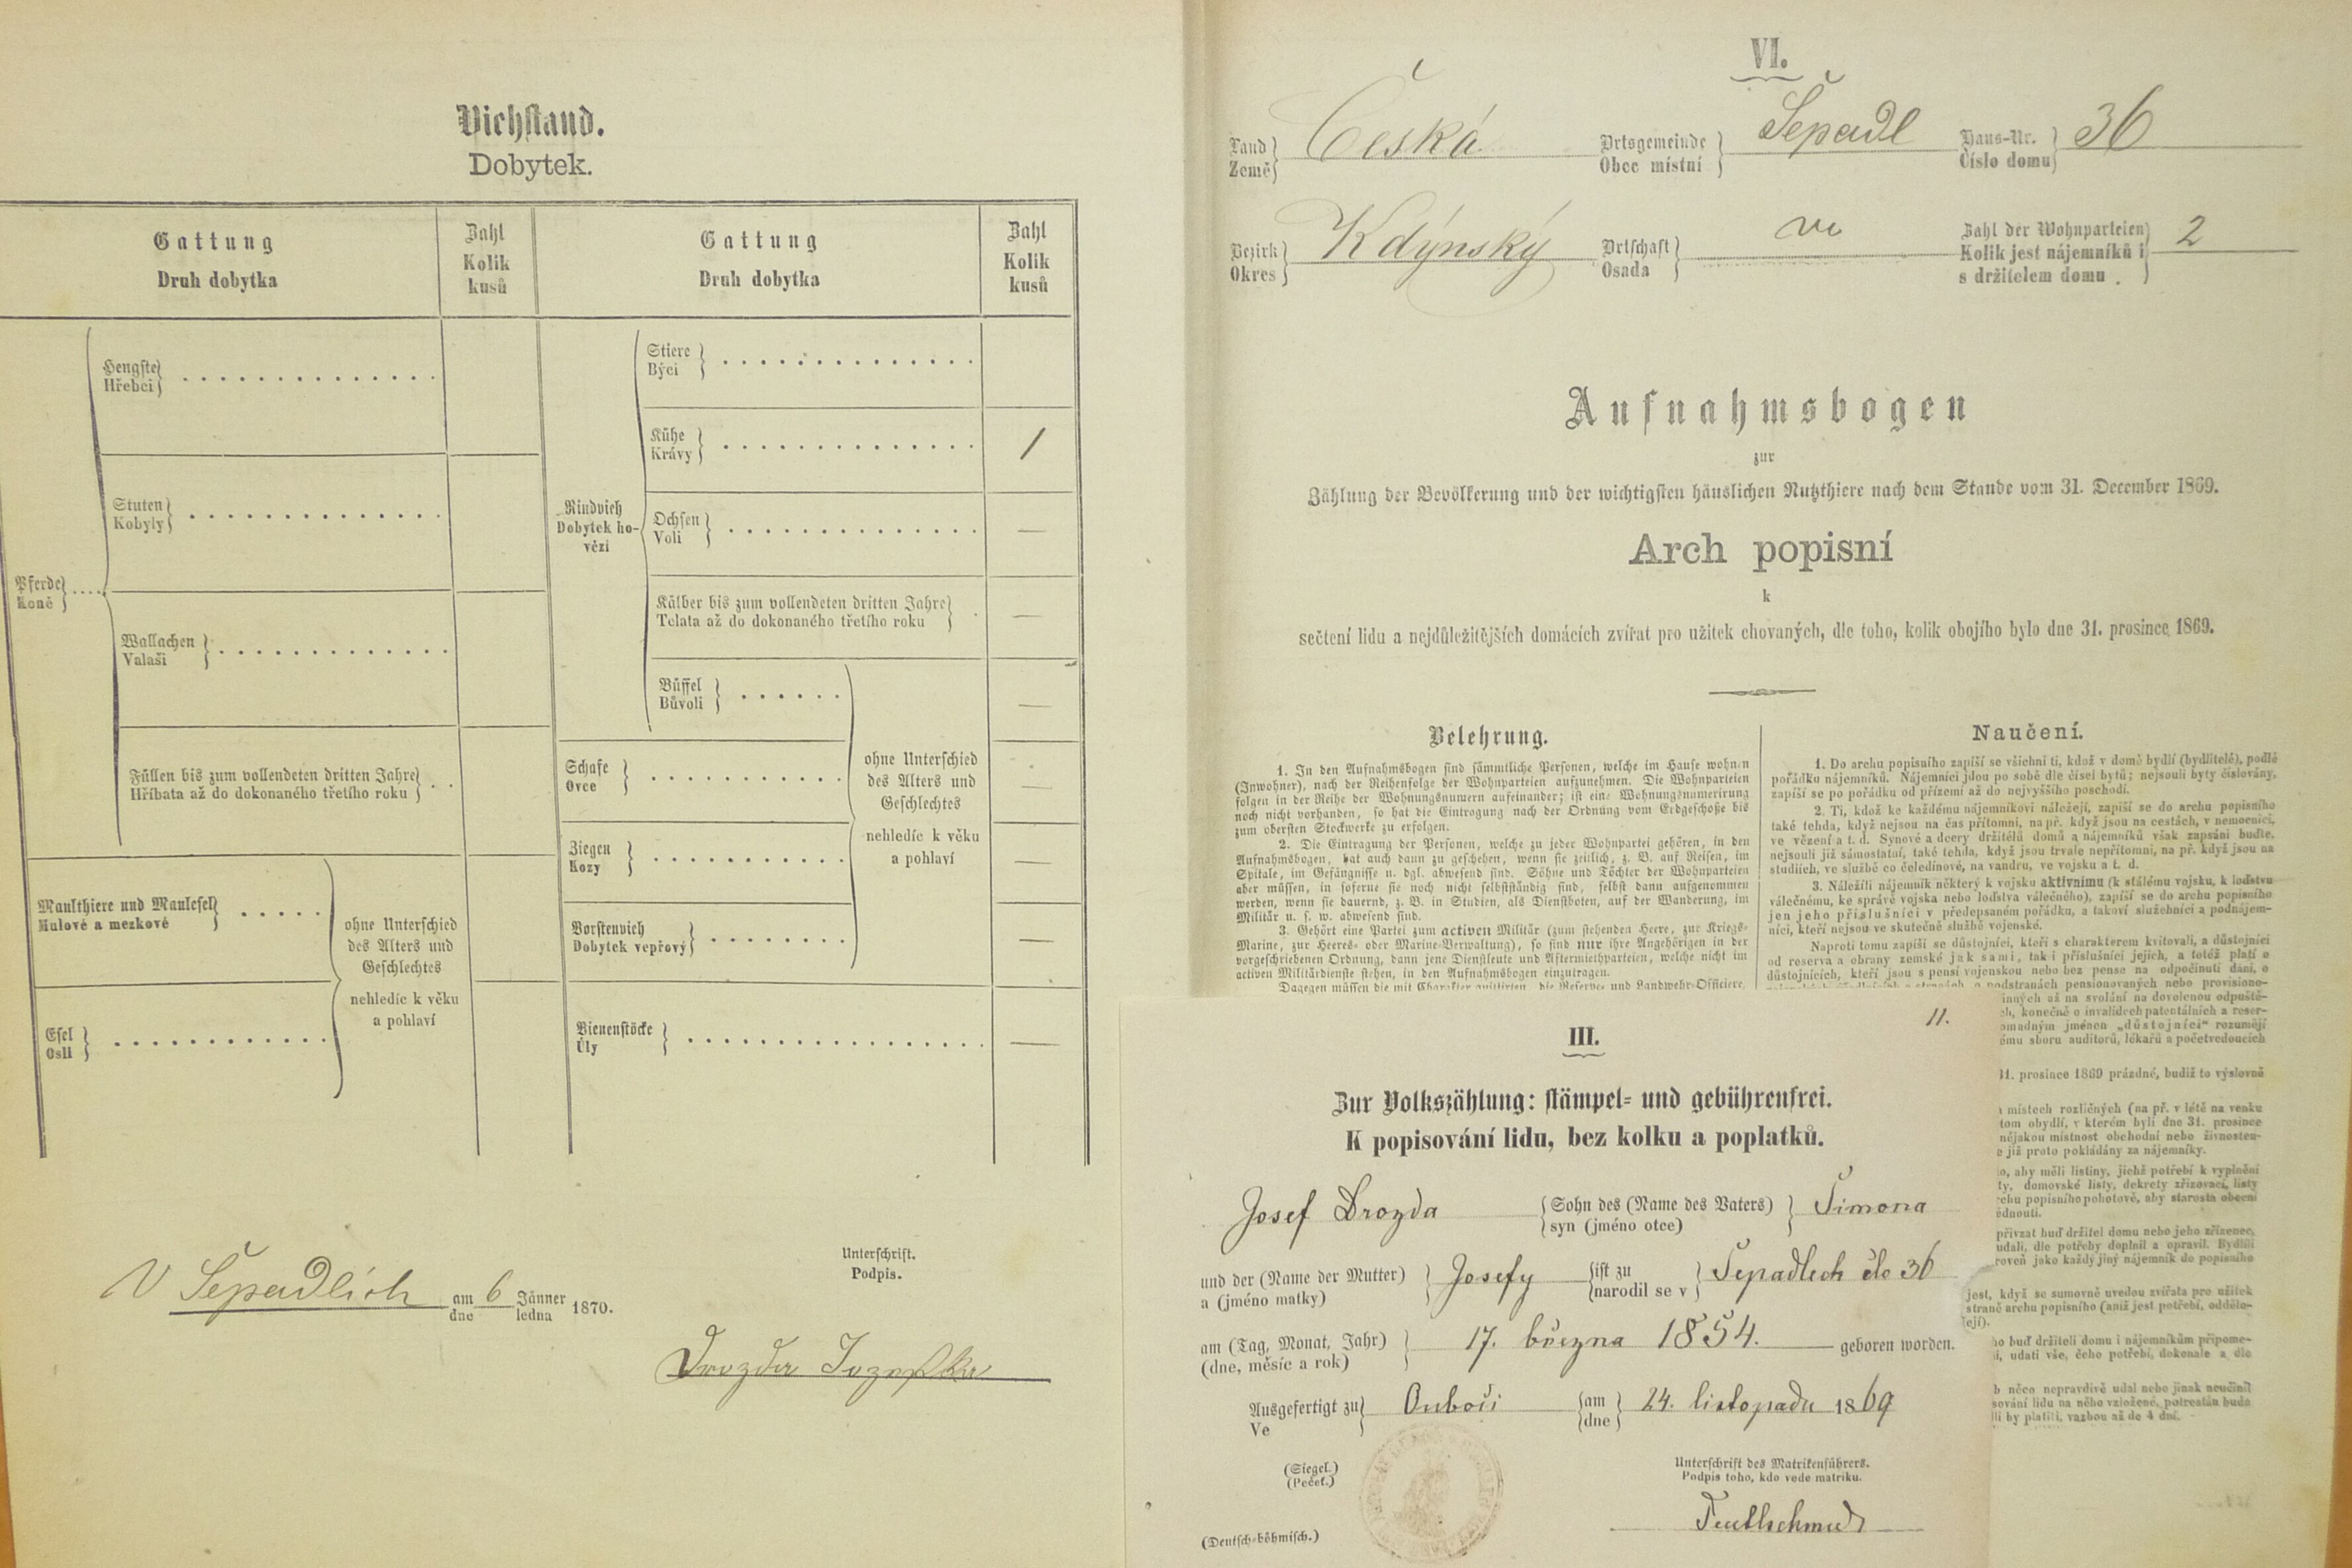 Viehstand.
Dobytek.
Gattung
Druh dobytka
Zahl
Kolik
kusů
Gattung
Druh dobytka
Zahl
Kolik
kusů
Pferde
Koně
Hengste
Hřebci
Stuten
Kobyly
Wallachen
Valaši
Füllen bis zum vollendeten dritten Jahre
Hříbata až do dokonaného třetího roku
Maulthiere und Maulesel
Mulové a mezkové
Esel
Osli
ohne Unterschied
des Alters und
Geschlechtes
nehledíc k věku
a pohlaví
Rindvieh
Dobytek ho-
vězí
Stiere
Býci
Kühe
Krávy
1
Ochsen
Voli
—
Kälber bis zum vollendeten dritten Jahre
Telata až do dokonaného třetího roku
—
Büffel
Bůvoli
—
Schafe
Ovce
—
Ziegen
Kozy
—
Borstenvieh
Dobytek vepřový
—
ohne Unterschied
des Alters und
Geschlechtes
nehledíc k věku
a pohlaví
Bienenstöcke
Úly
—
V Šepadlích am dne 6 Jänner ledna 1870.
Unterschrift.
Podpis.
Drozda Jozefka
VI.
Land Země Česká Ortsgemeinde Obec místní Šepadl Haus-Nr. Číslo domu 36
Bezirk Okres Kdýnský Ortschaft Osada
Zahl der Wohnparteien
Kolik jest nájemníků i
s držitelem domu . 2
Aufnahmsbogen
zur
Zählung der Bevölkerung und der wichtigsten häuslichen Nutzthiere nach dem Stande vom 31. December 1869.
Arch popisní
k
sečtení lidu a nejdůležitějších domácích zvířat pro užitek chovaných, dle toho, kolik obojího bylo dne 31. prosince 1869.
Belehrung.
1. In den Aufnahmsbogen sind sämmtliche Personen, welche im Hause wohnen
(Inwohner), nach der Reihenfolge der Wohnparteien aufzunehmen. Die Wohnparteien
folgen in der Reihe der Wohnungsnumern aufeinander; ist eine Wohnungsnumerirung
noch nicht vorhanden, so hat die Eintragung nach der Ordnung vom Erdgeschoße bis
zum obersten Stockwerke zu erfolgen.
2. Die Eintragung der Personen, welche zu jeder Wohnpartei gehören, in den
Aufnahmsbogen, hat auch dann zu geschehen, wenn sie zeitlich, z. B. auf Reisen, im
Spitale, im Gefängnisse u. dgl. abwesend sind. Söhne und Töchter der Wohnparteien
aber müssen, in soferne sie noch nicht selbstständig sind, selbst dann aufgenommen
werden, wenn sie dauernd, z. B. in Studien, als Dienstboten, auf der Wanderung, im
Militär u. s. w. abwesend sind.
3. Gehört eine Partei zum activen Militär (zum stehenden Heere, zur Kriegs-
Marine, zur Heeres- oder Marine-Verwaltung), so sind nur ihre Angehörigen in der
vorgeschriebenen Ordnung, dann jene Dienstleute und Aftermiethparteien, welche nicht im
activen Militärdienste stehen, in den Aufnahmsbogen einzutragen.
Dagegen müssen die mit Charakter quittirten, die Reserve- und Landwehr-Officiere,
Naučení.
1. Do archu popisního zapíší se všichni ti, kdož v domě bydlí (bydlitelé), podlé
pořádku nájemníků. Nájemníci jdou po sobě dle čísel bytů; nejsouli byty číslovány,
zapíší se po pořádku od přízemí až do nejvyššího poschodí.
2. Ti, kdož ke každému nájemníkovi náležejí, zapíší se do archu popisního
také tehda, když nejsou na čas přítomni, na př. když jsou na cestách, v nemocnici,
ve vězení a t. d. Synové a dcery držitelů domů a nájemníků však zapsáni buďte,
nejsouli již sámostatní, také tehda, když jsou trvale nepřítomni, na př. když jsou na
studiích, ve službě co čeledínové, na vandru, ve vojsku a t. d.
3. Náležíli nájemník některý k vojsku aktivnímu (k stálému vojsku, k loďstvu
válečnému, ke správě vojska nebo loďstva válečného), zapíší se do archu popisního
jen jeho příslušníci v předepsaném pořádku, a takoví služebníci a podnájem-
níci, kteří nejsou ve skutečné službě vojenské.
Naproti tomu zapíší se důstojníci, kteří s charakterem kvitovali, a důstojníci
od reserva a obrany zemské jak sami, tak i příslušníci jejich, a totéž platí o
důstojnících, kteří jsou s pensí vojenskou nebo bez pense na odpočinutí dáni, o
podstranách pensionovaných nebo provisiono-
inných až na svolání na dovolenou odpuště-
ch, konečně o invalidech patentálních a reser-
omadným jménem „důstojníci“ rozumějí
ómu sboru auditorů, lékařů a početvedoucích
31. prosince 1869 prázdné, budiž to výslovně
místech rozličných (na př. v létě na venku
tom obydlí, v kterém byli dne 31. prosince
nějakou místnost obchodní nebo živnosten-
e již proto pokládány za nájemníky.
o, aby měli listiny, jichž potřebí k vyplnění
ty, domovské listy, dekrety zřizovací, listy
rchu popisního pohotově, aby starosta obecní
édnouti.
přivzat buď držitel domu nebo jeho zřízenec,
udali, dle potřeby doplnil a opravil. Bydlili
roveň jako každý jiný nájemník do popisního
jest, když se sumovně uvedou zvířata pro užitek
straně archu popisního (aniž jest potřebí, odděle-
ejí).
ho buď držiteli domu i nájemníkům připome-
i, udati vše, čeho potřebí, dokonale a dle
b něco nepravdivě udal nebo jinak neučinil
sování lidu na něho vzložené, potrestán bude
li by platiti, vazbou až do 4 dní.
11.
III.
Zur Volkszählung: stämpel- und gebührenfrei.
K popisování lidu, bez kolku a poplatků.
Josef Drozda Sohn des (Name des Vaters) syn (jméno otce) Šimona
und der (Name der Mutter) a (jméno matky) Josefy ist zu narodil se v Šepadlech čís 36
am (Tag, Monat, Jahr) (dne, měsíc a rok) 17. března 1854. geboren worden.
Ausgefertigt zu Ve Ouboči am dne 24. listopadu 1869
(Siegel.)
(Pečeť.)
Unterschrift des Matrikenführers.
Podpis toho, kdo vede matriku.
(Deutsch-böhmisch.)